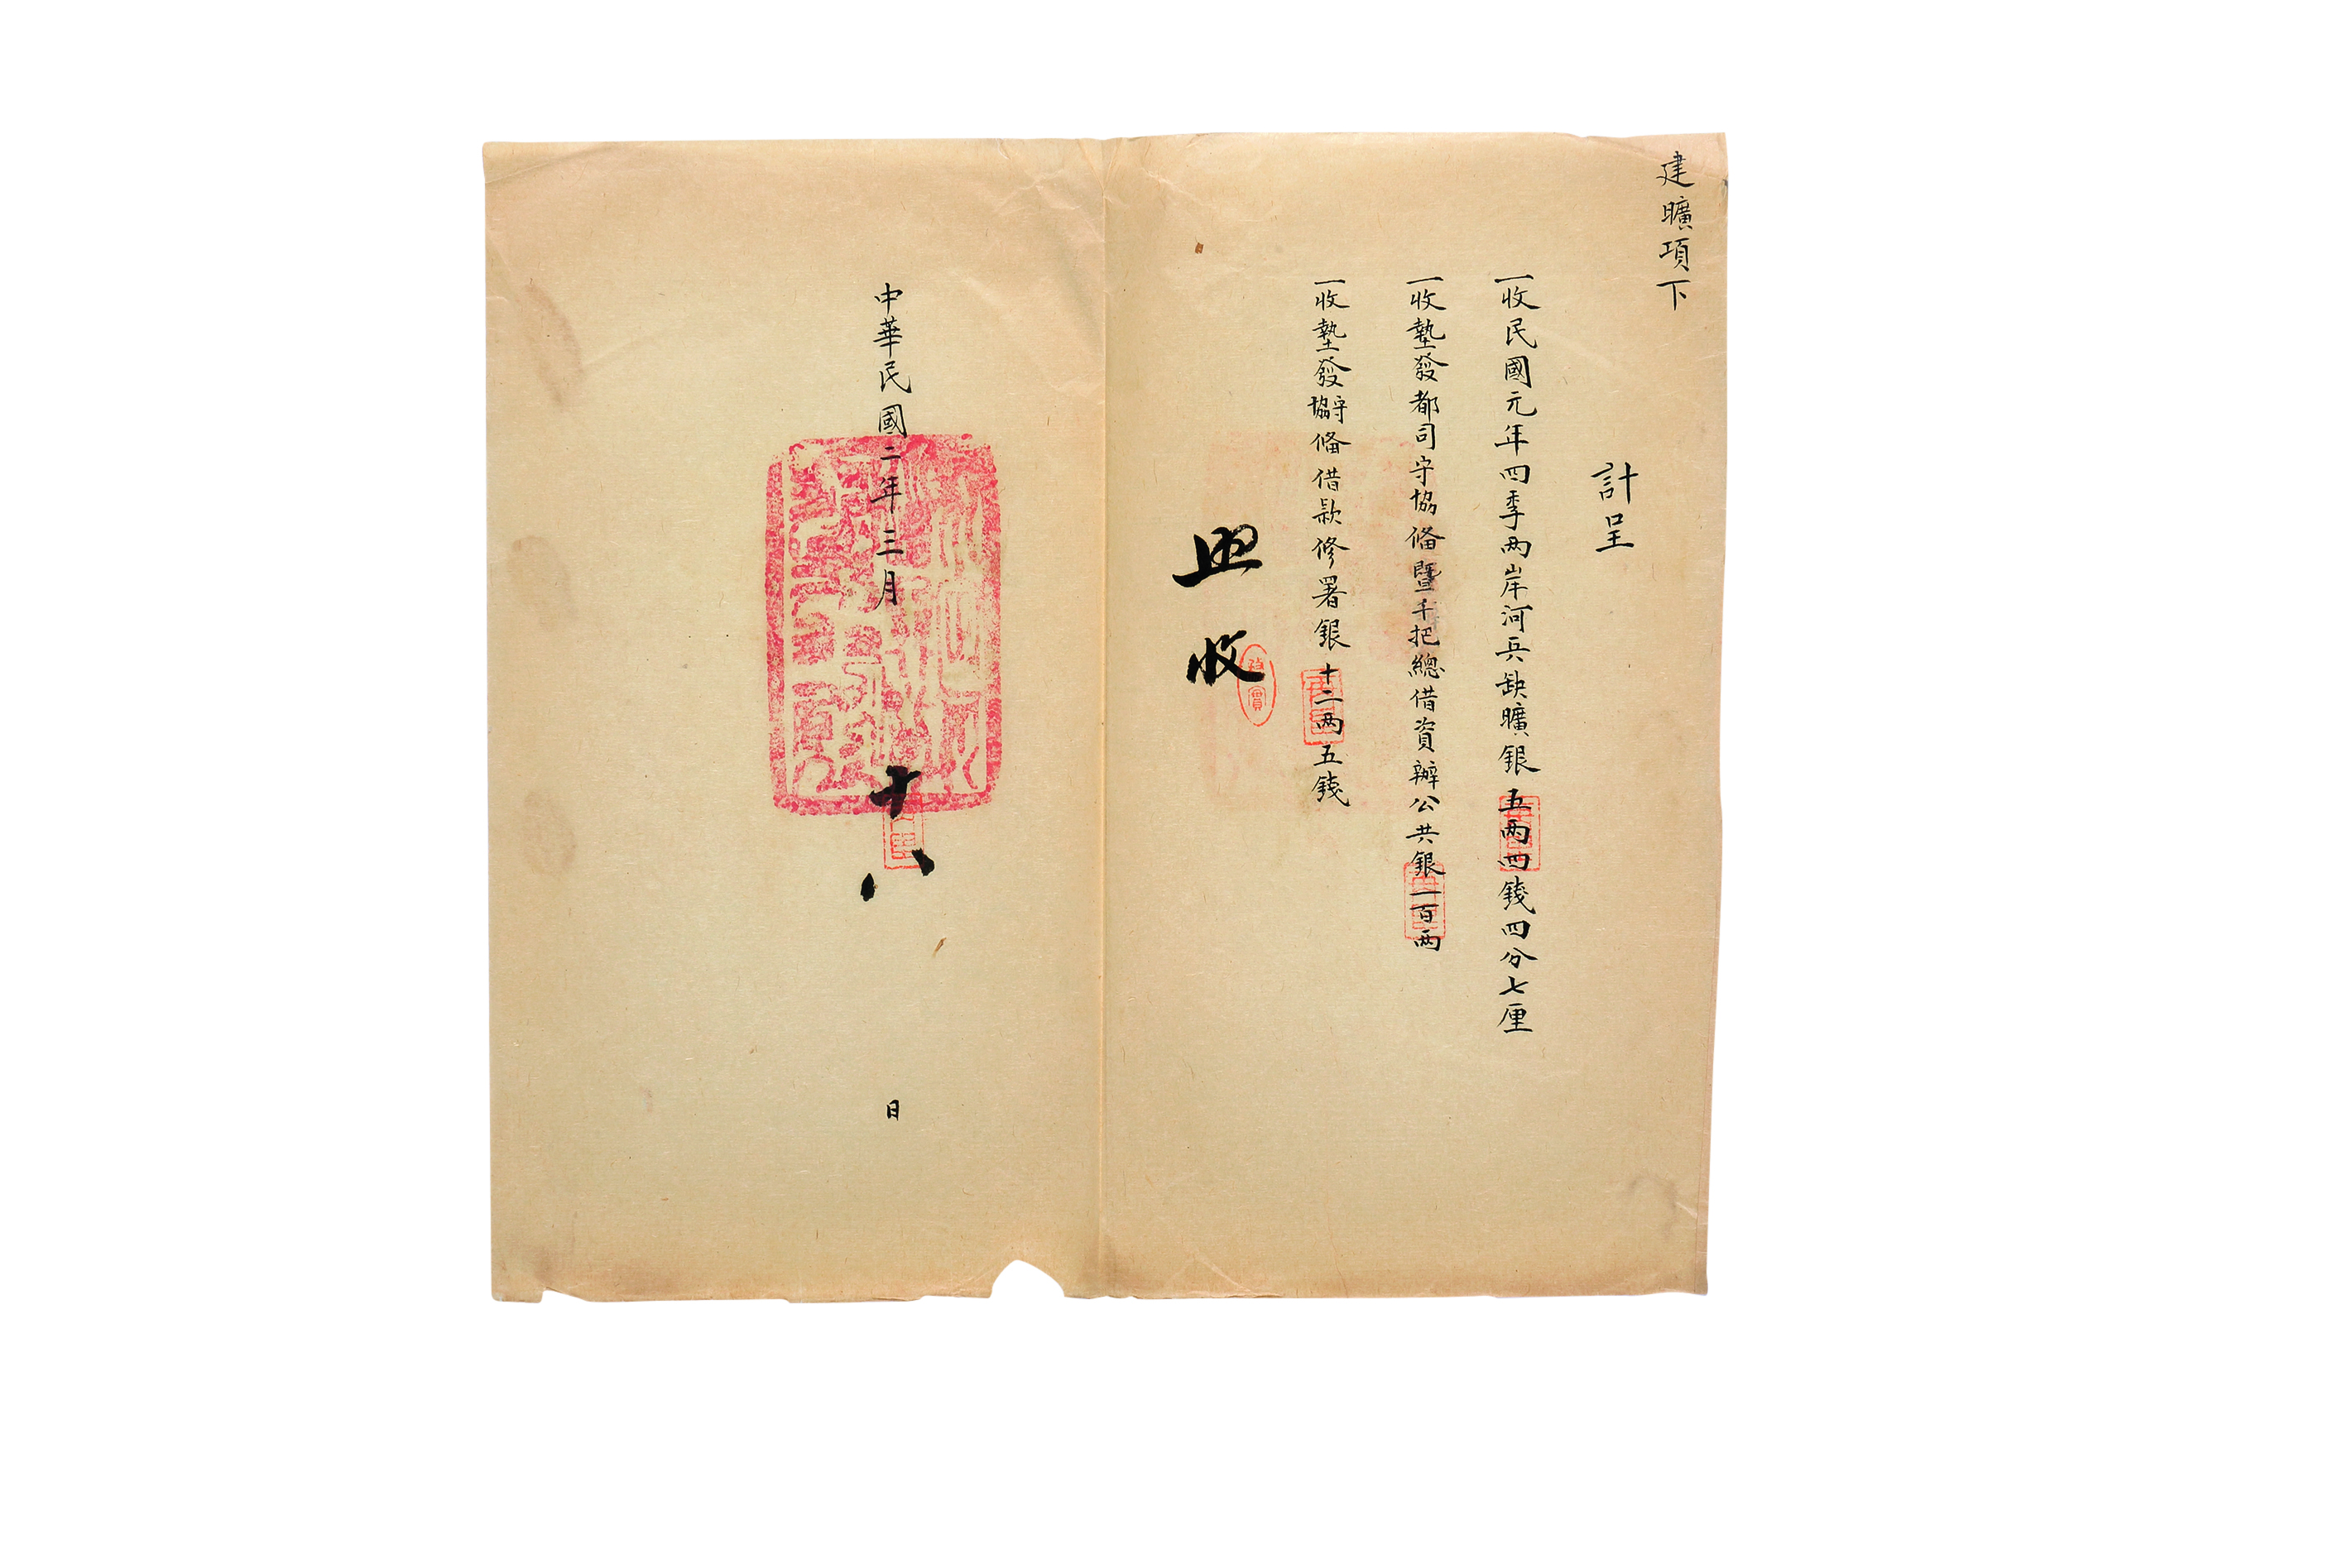 建曠項下
計呈
一收民國元年四季两岸河兵缺曠銀五两四錢四分七厘
一收墊發都司守協俻暨千把總借資辦公共銀一百两
一收墊發守協俻借款修署銀十二两五錢
照收
中華民國二年三月十八日